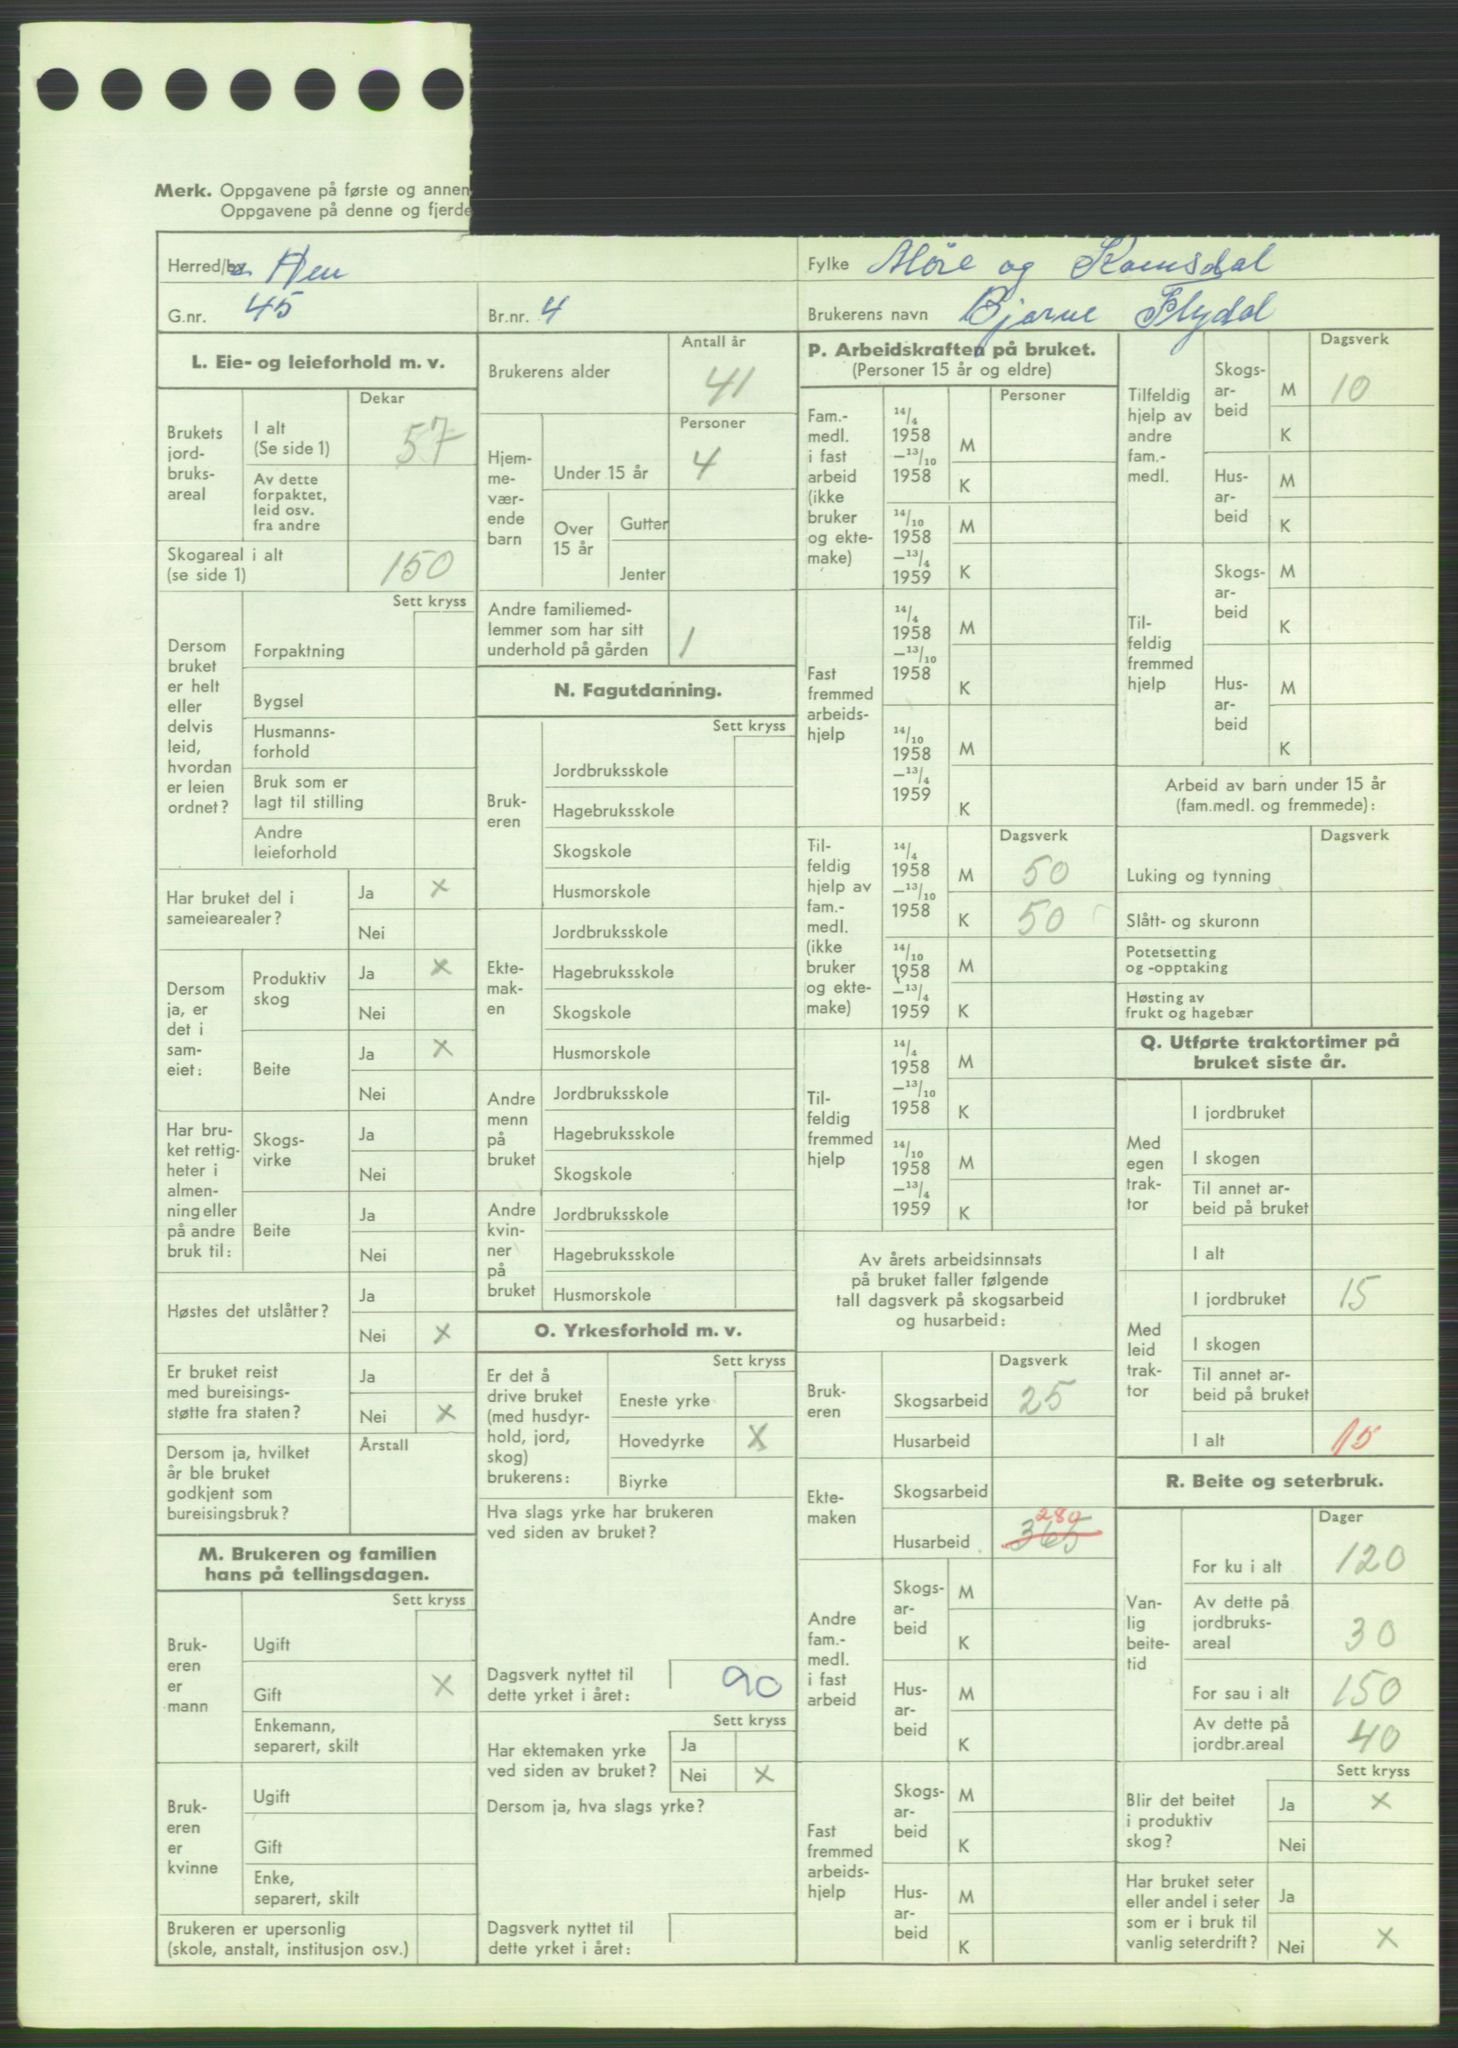 Merk. Oppgavene på første og annen
Oppgavene på denne og fjerde
Herred/by Hen
Fylke Møre og Romsdal
G.nr. 45
Br.nr. 4
Brukerens navn Bjarne Flydal
L. Eie- og leieforhold m. v.
Dekar
Brukets jord-bruks-areal
I alt (Se side 1) 57
Av dette forpaktet, leid osv. fra andre
Skogareal i alt (se side 1) 150
Sett kryss
Dersom bruket er helt eller delvis leid, hvordan er leien ordnet?
Forpaktning
Bygsel
Husmanns-forhold
Bruk som er lagt til stilling
Andre leieforhold
Har bruket del i sameiearealer?
Ja X
Nei
Dersom ja, er det i sam-eiet:
Produktiv skog
Ja X
Nei
Beite
Ja X
Nei
Har bru-ket rettig-heter i almen-ning eller på andre bruk til:
Skogs-virke
Ja
Nei
Beite
Ja
Nei
Høstes det utslåtter?
Ja
Nei X
Er bruket reist med bureisings-støtte fra staten?
Ja
Nei X
Dersom ja, hvilket år ble bruket godkjent som bureisingsbruk?
Årstall
M. Brukeren og familien hans på tellingsdagen.
Sett kryss
Bruk-eren er mann
Ugift
Gift X
Enkemann, separert, skilt
Bruk-eren er kvinne
Ugift
Gift
Enke, separert, skilt
Brukeren er upersonlig (skole, anstalt, institusjon osv.)
Antall år
Brukerens alder 41
Personer
Hjem-me-vær-ende barn
Under 15 år 4
Over 15 år
Gutter
Jenter
Andre familiemed-lemmer som har sitt underhold på gården 1
N. Fagutdanning.
Sett kryss
Bruk-eren
Jordbruksskole
Hagebruksskole
Skogskole
Husmorskole
Ekte-mak-en
Jordbruksskole
Hagebruksskole
Skogskole
Husmorskole
Andre menn på bruket
Jordbruksskole
Hagebruksskole
Skogskole
Andre kvin-ner på bruket
Jordbruksskole
Hagebruksskole
Husmorskole
O. Yrkesforhold m. v.
Sett kryss
Er det å drive bruket (med husdyr-hold, jord, skog) brukerens:
Eneste yrke
Hovedyrke X
Biyrke
Hva slags yrke har brukeren ved siden av bruket?
Dagsverk nyttet til dette yrket i året: 90
Sett kryss
Har ektemaken yrke ved siden av bruket?
Ja
Nei X
Dersom ja, hva slags yrke?
Dagsverk nyttet til dette yrket i året:
P. Arbeidskraften på bruket.
(Personer 15 år og eldre)
Personer
Fam.-medl. i fast arbeid (ikke bruker og ekte-make)
14/4 1958 –13/10 1958
M
K
14/10 1958 –13/4 1959
M
K
Fast fremmed arbeids-hjelp
14/4 1958 –13/10 1958
M
K
14/10 1958 –13/4 1959
M
K
Dagsverk
Til-feldig hjelp av fam.-medl. (ikke bruker og ekte-make)
14/4 1958 –13/10 1958
M 50
K 50
14/10 1958 –13/4 1959
M
K
Til-feldig fremmed hjelp
14/4 1958 –13/10 1958
M
K
14/10 1958 –13/4 1959
M
K
Av årets arbeidsinnsats på bruket faller følgende tall dagsverk på skogsarbeid og husarbeid:
Dagsverk
Bruk-eren
Skogsarbeid 25
Husarbeid
Ekte-maken
Skogsarbeid
Husarbeid 280 365
Andre fam.-medl. i fast arbeid
Skogs-ar-beid
M
K
Hus-ar-beid
M
K
Fast fremmed arbeids-hjelp
Skogs-ar-beid
M
K
Hus-ar-beid
M
K
Dagsverk
Tilfeldig hjelp av andre fam.-medl.
Skogs-ar-beid
M 10
K
Hus-ar-beid
M
K
Til-feldig fremmed hjelp
Skogs-ar-beid
M
K
Hus-ar-beid
M
K
Arbeid av barn under 15 år (fam.medl. og fremmede):
Dagsverk
Luking og tynning
Slått- og skuronn
Potetsetting og -opptaking
Høsting av frukt og hagebær
Q. Utførte traktortimer på bruket siste år.
Med egen trak-tor
I jordbruket
I skogen
Til annet ar-beid på bruket
I alt
Med leid trak-tor
I jordbruket 15
I skogen
Til annet ar-beid på bruket
I alt 15
R. Beite og seterbruk.
Dager
Van-lig beite-tid
For ku i alt 120
Av dette på jordbruks-areal 30
For sau i alt 150
Av dette på jordbr.areal 40
Sett kryss
Blir det beitet i produktiv skog?
Ja X
Nei
Har bruket seter eller andel i seter som er i bruk til vanlig seterdrift?
Ja
Nei X